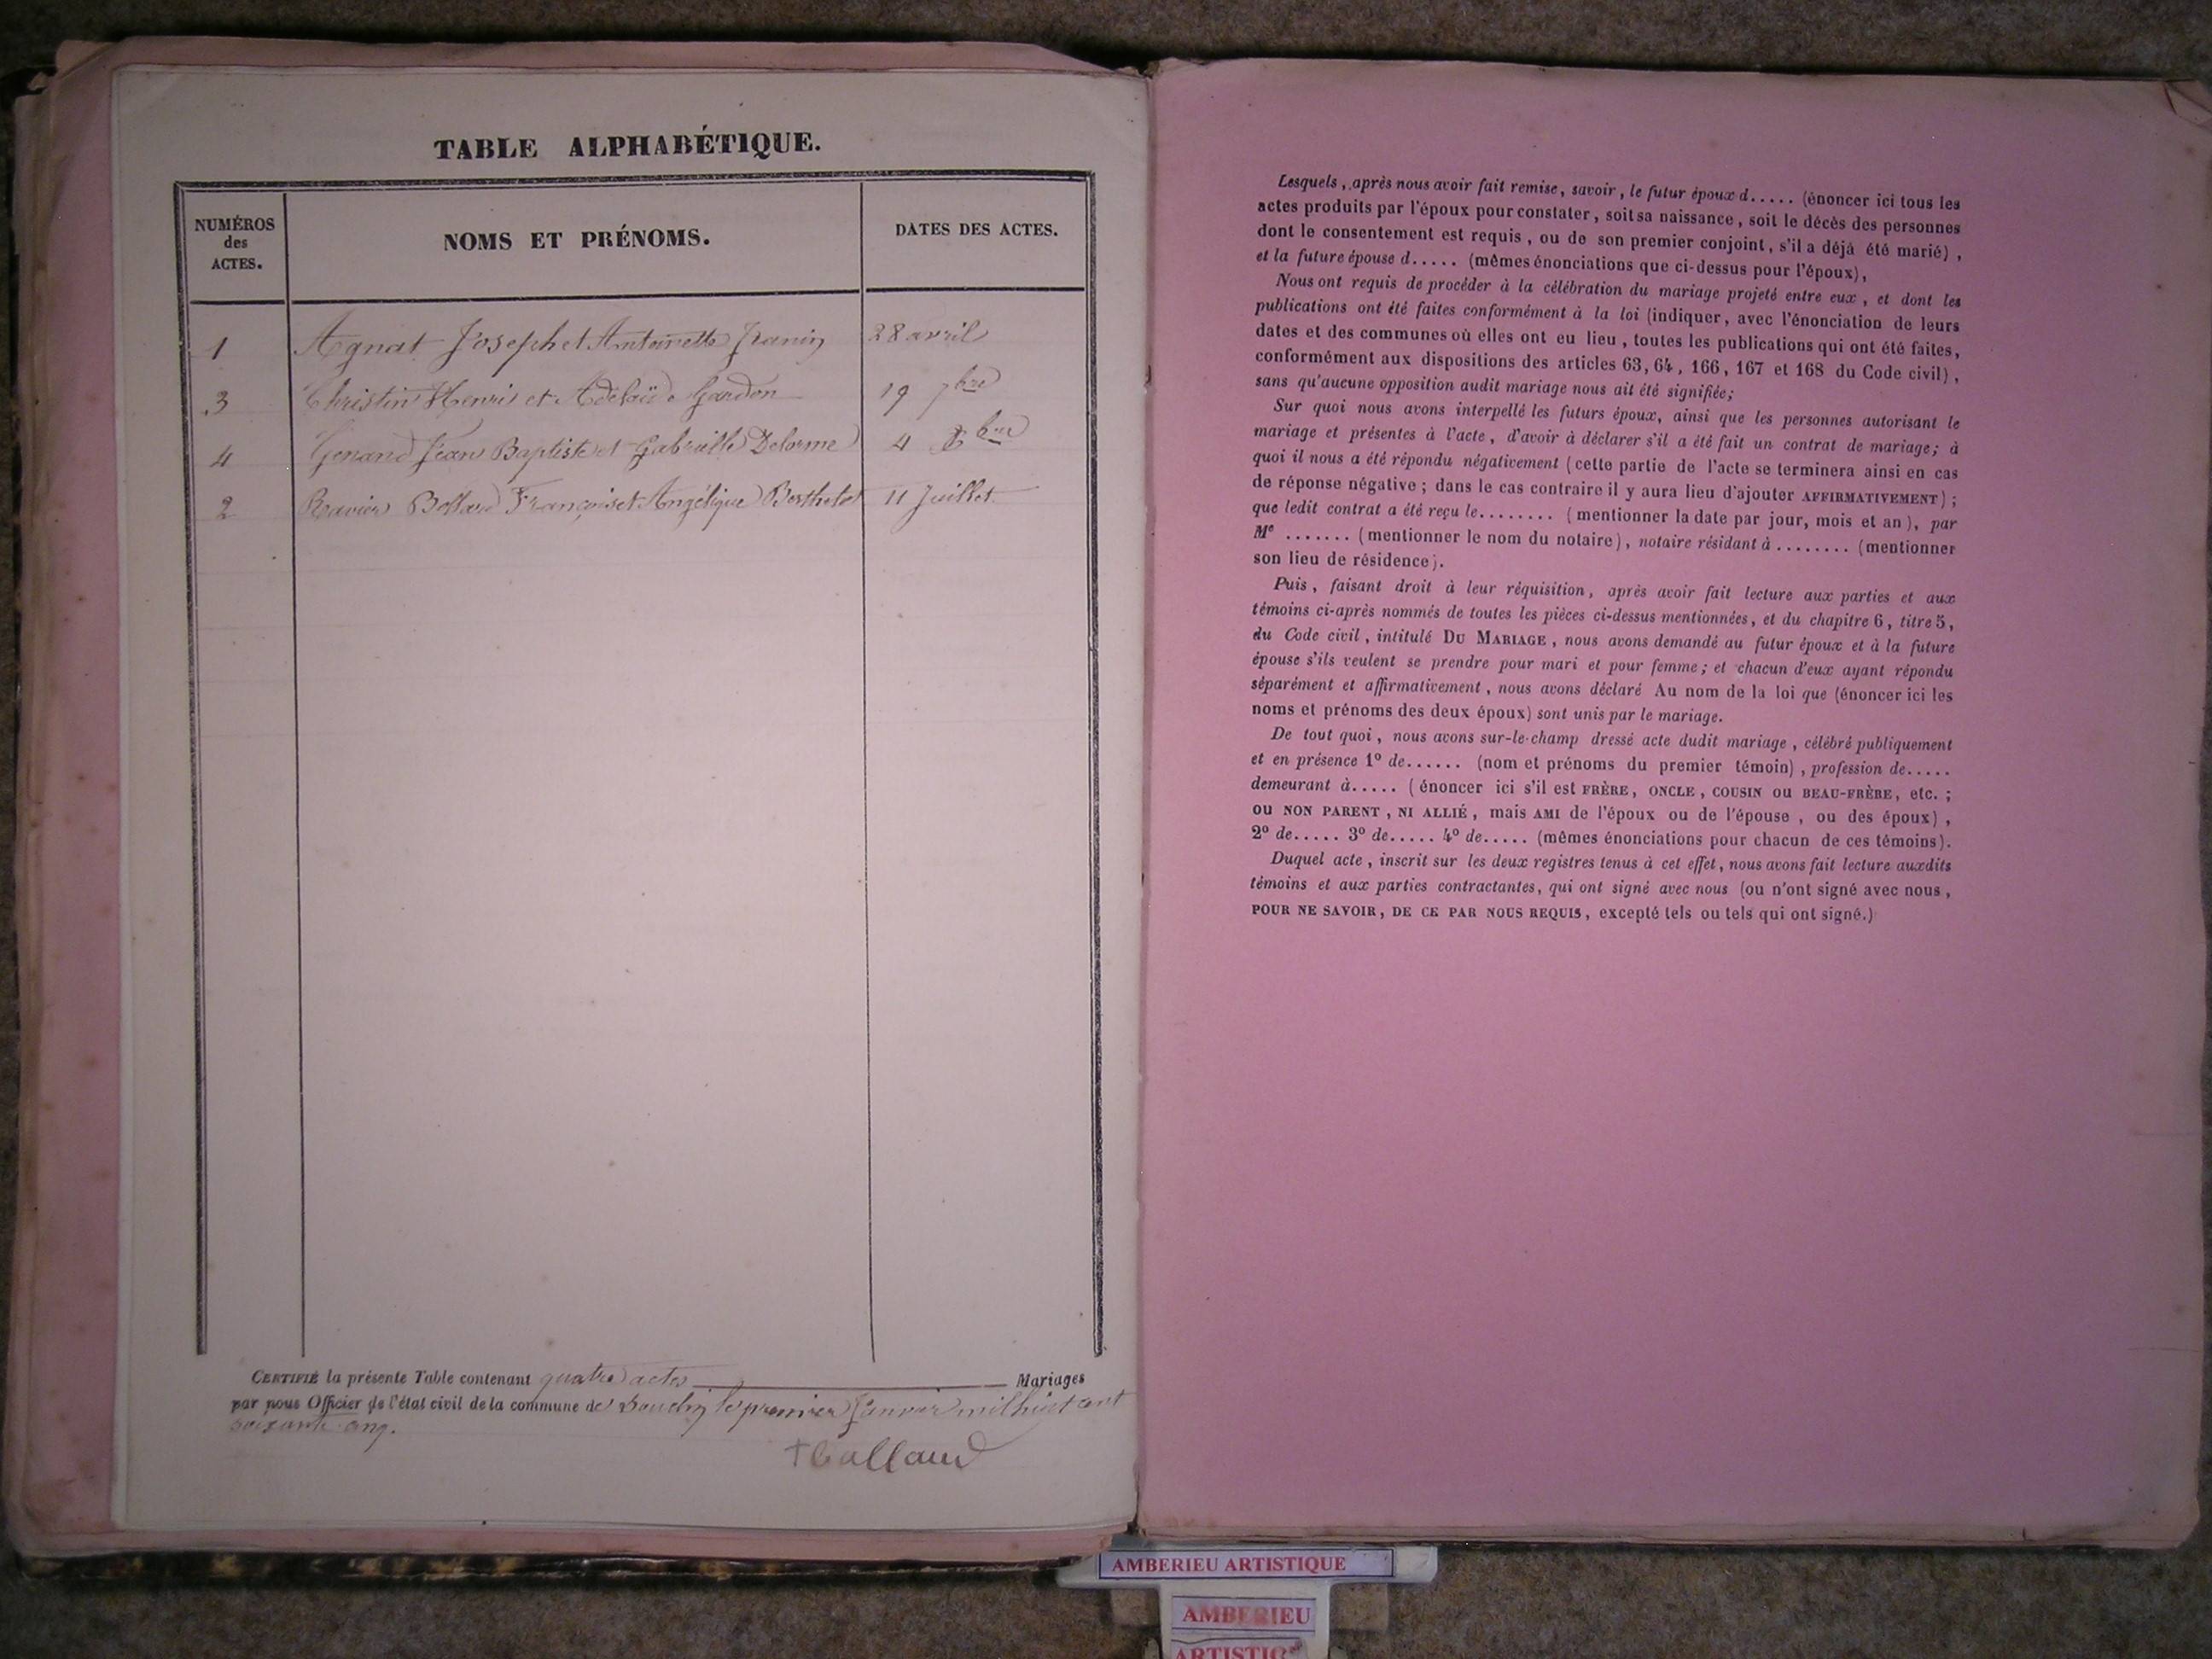 TABLE ALPHABÉTIQUE.
NUMÉROS
des
ACTES.
NOMS ET PRÉNOMS.
DATES DES ACTES.
1 Agnat Joseph et Antoinette Janin 28 avril
3 Christin Henri et Adelaïde Gardon 19 7bre
4 Genand Jean Baptiste et Gabrielle Delorme 4 bre
2 Ravier François et Angélique Berthelet 11 Juillet
CERTIFIÉ la présente Table contenant quatre actes Mariages
par nous Officier de l'état civil de la commune de le premier Janvier mil huit cent
soixante cinq.
Lesquels, après nous avoir fait remise, savoir, le futur époux d..... (énoncer ici tous les
actes produits par l'époux pour constater, soit sa naissance, soit le décès des personnes
dont le consentement est requis, ou de son premier conjoint, s'il a déjà été marié),
et la future épouse d..... (mêmes énonciations que ci-dessus pour l'époux),
Nous ont requis de procéder à la célébration du mariage projeté entre eux, et dont les
publications ont été faites conformément à la loi (indiquer, avec l'énonciation de leurs
dates et des communes où elles ont eu lieu, toutes les publications qui ont été faites,
conformément aux dispositions des articles 63, 64, 166, 167 et 168 du Code civil),
sans qu'aucune opposition audit mariage nous ait été signifiée;
Sur quoi nous avons interpellé les futurs époux, ainsi que les personnes autorisant le
mariage et présentes à l'acte, d'avoir à déclarer s'il a été fait un contrat de mariage; à
quoi il nous a été répondu négativement (cette partie de l'acte se terminera ainsi en cas
de réponse négative; dans le cas contraire il y aura lieu d'ajouter AFFIRMATIVEMENT);
que ledit contrat a été reçu le........ (mentionner la date par jour, mois et an), par
Me ....... (mentionner le nom du notaire), notaire résidant à ........ (mentionner
son lieu de résidence).
Puis, faisant droit à leur réquisition, après avoir fait lecture aux parties et aux
témoins ci-après nommés de toutes les pièces ci-dessus mentionnées, et du chapitre 6, titre 5,
du Code civil, intitulé DU MARIAGE, nous avons demandé au futur époux et à la future
épouse s'ils veulent se prendre pour mari et pour femme; et chacun d'eux ayant répondu
séparément et affirmativement, nous avons déclaré Au nom de la loi que (énoncer ici les
noms et prénoms des deux époux) sont unis par le mariage.
De tout quoi, nous avons sur-le-champ dressé acte dudit mariage, célébré publiquement
et en présence 1º de...... (nom et prénoms du premier témoin), profession de.....
demeurant à..... (énoncer ici s'il est FRÈRE, ONCLE, COUSIN ou BEAU-FRÈRE, etc.;
ou NON PARENT, NI ALLIÉ, mais AMI de l'époux ou de l'épouse, ou des époux),
2º de..... 3º de..... 4º de..... (mêmes énonciations pour chacun de ces témoins).
Duquel acte, inscrit sur les deux registres tenus à cet effet, nous avons fait lecture auxdits
témoins et aux parties contractantes, qui ont signé avec nous (ou n'ont signé avec nous,
POUR NE SAVOIR, DE CE PAR NOUS REQUIS, excepté tels ou tels qui ont signé.)
AMBERIEU ARTISTIQUE
AMBERIEU